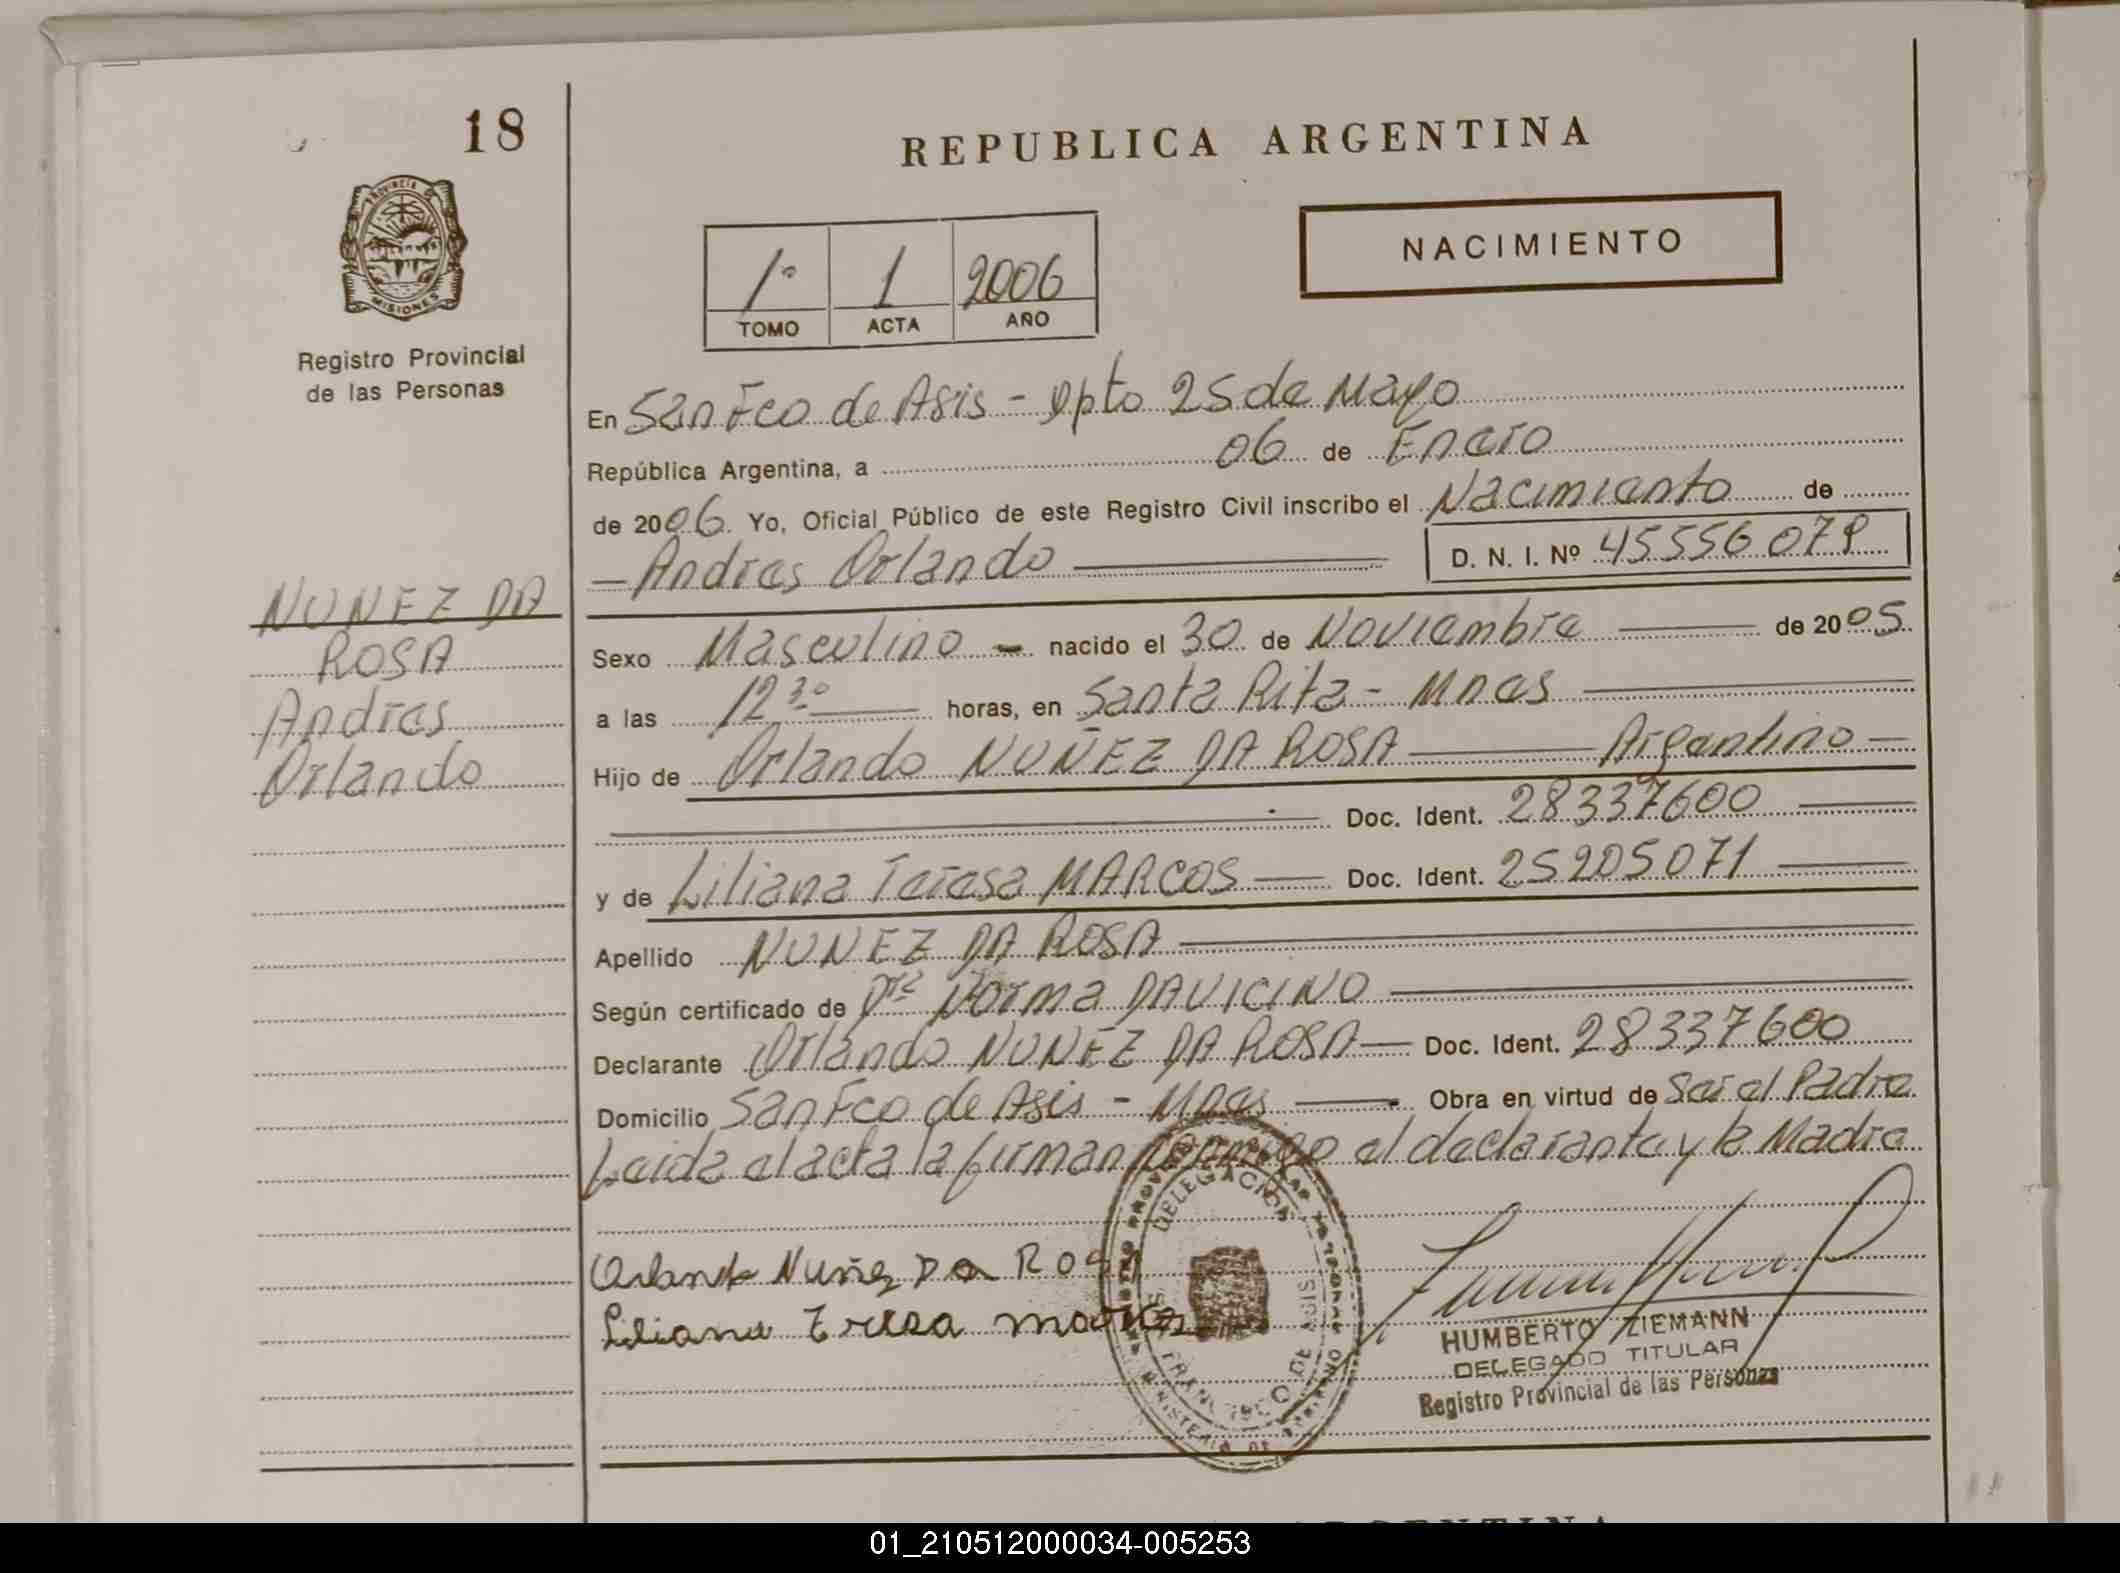 18
REPUBLICA ARGENTINA
PROVINCIA DE
MISIONES
NACIMIENTO
1º 1 2006
TOMO ACTA AÑO
Registro Provincial
de las Personas
En San Fco de Asis - Dpto 25 de Mayo
República Argentina, a 06 de Enero
de 2006. Yo, Oficial Público de este Registro Civil inscribo el Nacimiento de
- Andres Orlando D. N. I. Nº 45556079
NUNEZ DA
ROSA
Andres
Orlando
Sexo Masculino - nacido el 30 de Noviembre de 2005
a las 12 30 horas, en Santa Rita - Mnes
Hijo de Orlando NUÑEZ DA ROSA Argentino
Doc. Ident. 28337600
y de Liliana Teresa MARCOS Doc. Ident. 25205071
Apellido NUNEZ DA ROSA
Según certificado de Dra Norma DAVICINO
Declarante Orlando NUNEZ DA ROSA Doc. Ident. 28337600
Domicilio San Fco de Asis - Mnes Obra en virtud de Ser el Padre
Leida el acta la firman conmigo el declarante y la Madre
Orlando Nuñez Da Rosa
Liliana Teresa marcos
DELEGACION
FRANCISCO DE ASIS
MINISTERIO DE
HUMBERTO ZIEMANN
DELEGADO TITULAR
Registro Provincial de las Personas
01_210512000034-005253